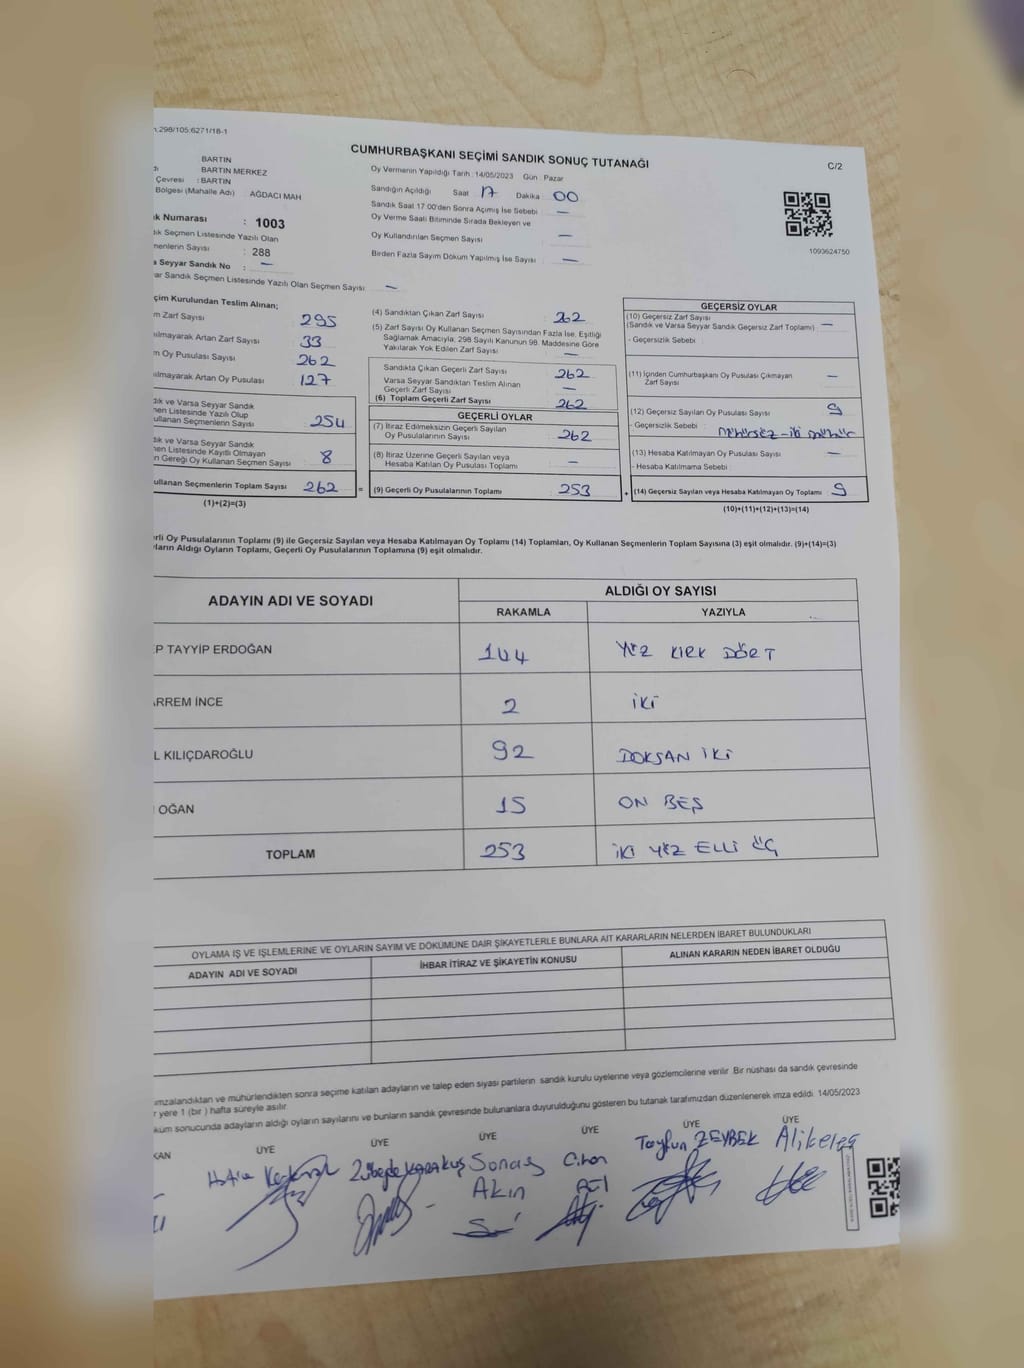 n.298/105:6271/18-1
CUMHURBAŞKANI SEÇİMİ SANDIK SONUÇ TUTANAĞI
C/2
BARTIN
BARTIN MERKEZ
Çevresi : BARTIN
Bölgesi (Mahalle Adı) : AĞDACI MAH
Oy Vermenin Yapıldığı Tarih : 14/05/2023 Gün : Pazar
Sandığın Açıldığı Saat 17 Dakika 00
Sandık Saat 17:00'den Sonra Açımış İse Sebebi : —
Oy Verme Saati Bitiminde Sırada Bekleyen ve
Oy Kullandırılan Seçmen Sayısı : —
Birden Fazla Sayım Döküm Yapılmış İse Sayısı : —
1093624750
k Numarası : 1003
ık Seçmen Listesinde Yazılı Olan
menlerin Sayısı : 288
a Seyyar Sandık No : —
ar Sandık Seçmen Listesinde Yazılı Olan Seçmen Sayısı : —
çim Kurulundan Teslim Alınan;
m Zarf Sayısı 295
ılmayarak Artan Zarf Sayısı 33
m Oy Pusulası Sayısı 262
ılmayarak Artan Oy Pusulası 127
dık ve Varsa Seyyar Sandık
men Listesinde Yazılı Olup
ullanan Seçmenlerin Sayısı 254
dık ve Varsa Seyyar Sandık
en Listesinde Kayıtlı Olmayan
n Gereği Oy Kullanan Seçmen Sayısı 8
ullanan Seçmenlerin Toplam Sayısı 262 =
(1)+(2)=(3)
(4) Sandıktan Çıkan Zarf Sayısı : 262
(5) Zarf Sayısı Oy Kullanan Seçmen Sayısından Fazla İse, Eşitliği
Sağlamak Amacıyla; 298 Sayılı Kanunun 98. Maddesine Göre
Yakılarak Yok Edilen Zarf Sayısı : —
Sandıkta Çıkan Geçerli Zarf Sayısı 262
Varsa Seyyar Sandıktan Teslim Alınan
Geçerli Zarf Sayısı —
(6) Toplam Geçerli Zarf Sayısı 262
GEÇERLİ OYLAR
(7) İtiraz Edilmeksizin Geçerli Sayılan
Oy Pusulalarının Sayısı : 262
(8) İtiraz Üzerine Geçerli Sayılan veya
Hesaba Katılan Oy Pusulası Toplamı : —
(9) Geçerli Oy Pusulalarının Toplamı 253 +
GEÇERSİZ OYLAR
(10) Geçersiz Zarf Sayısı
(Sandık ve Varsa Seyyar Sandık Geçersiz Zarf Toplamı) : —
- Geçersizlik Sebebi :
(11) İçinden Cumhurbaşkanı Oy Pusulası Çıkmayan
Zarf Sayısı : —
(12) Geçersiz Sayılan Oy Pusulası Sayısı : 9
- Geçersizlik Sebebi : MÜHÜRSÜZ - İKİ MÜHÜR
(13) Hesaba Katılmayan Oy Pusulası Sayısı : —
- Hesaba Katılmama Sebebi :
(14) Geçersiz Sayılan veya Hesaba Katılmayan Oy Toplamı : 9
(10)+(11)+(12)+(13)=(14)
rli Oy Pusulalarının Toplamı (9) ile Geçersiz Sayılan veya Hesaba Katılmayan Oy Toplamı (14) Toplamları, Oy Kullanan Seçmenlerin Toplam Sayısına (3) eşit olmalıdır. (9)+(14)=(3)
ların Aldığı Oyların Toplamı, Geçerli Oy Pusulalarının Toplamına (9) eşit olmalıdır.
ADAYIN ADI VE SOYADI
ALDIĞI OY SAYISI
RAKAMLA YAZIYLA
P TAYYİP ERDOĞAN 144 YÜZ KIRK DÖRT
ARREM İNCE 2 İKİ
L KILIÇDAROĞLU 92 DOKSAN İKİ
OĞAN 15 ON BEŞ
TOPLAM 253 İKİ YÜZ ELLİ ÜÇ
OYLAMA İŞ VE İŞLEMLERİNE VE OYLARIN SAYIM VE DÖKÜMÜNE DAİR ŞİKAYETLERLE BUNLARA AİT KARARLARIN NELERDEN İBARET BULUNDUKLARI
ADAYIN ADI VE SOYADI İHBAR İTİRAZ VE ŞİKAYETİN KONUSU ALINAN KARARIN NEDEN İBARET OLDUĞU
imzalandıktan ve mühürlendikten sonra seçime katılan adayların ve talep eden siyasi partilerin sandık kurulu üyelerine veya gözlemcilerine verilir. Bir nüshası da sandık çevresinde
r yere 1 (bir ) hafta süreyle asılır.
küm sonucunda adayların aldığı oyların sayılarını ve bunların sandık çevresinde bulunanlara duyurulduğunu gösteren bu tutanak tarafımızdan düzenlenerek imza edildi. 14/05/2023
KAN ÜYE ÜYE ÜYE ÜYE ÜYE ÜYE
Zübeyde Karakuş Sonay Akın Cihan Tayfun ZEYBEK Ali keleş